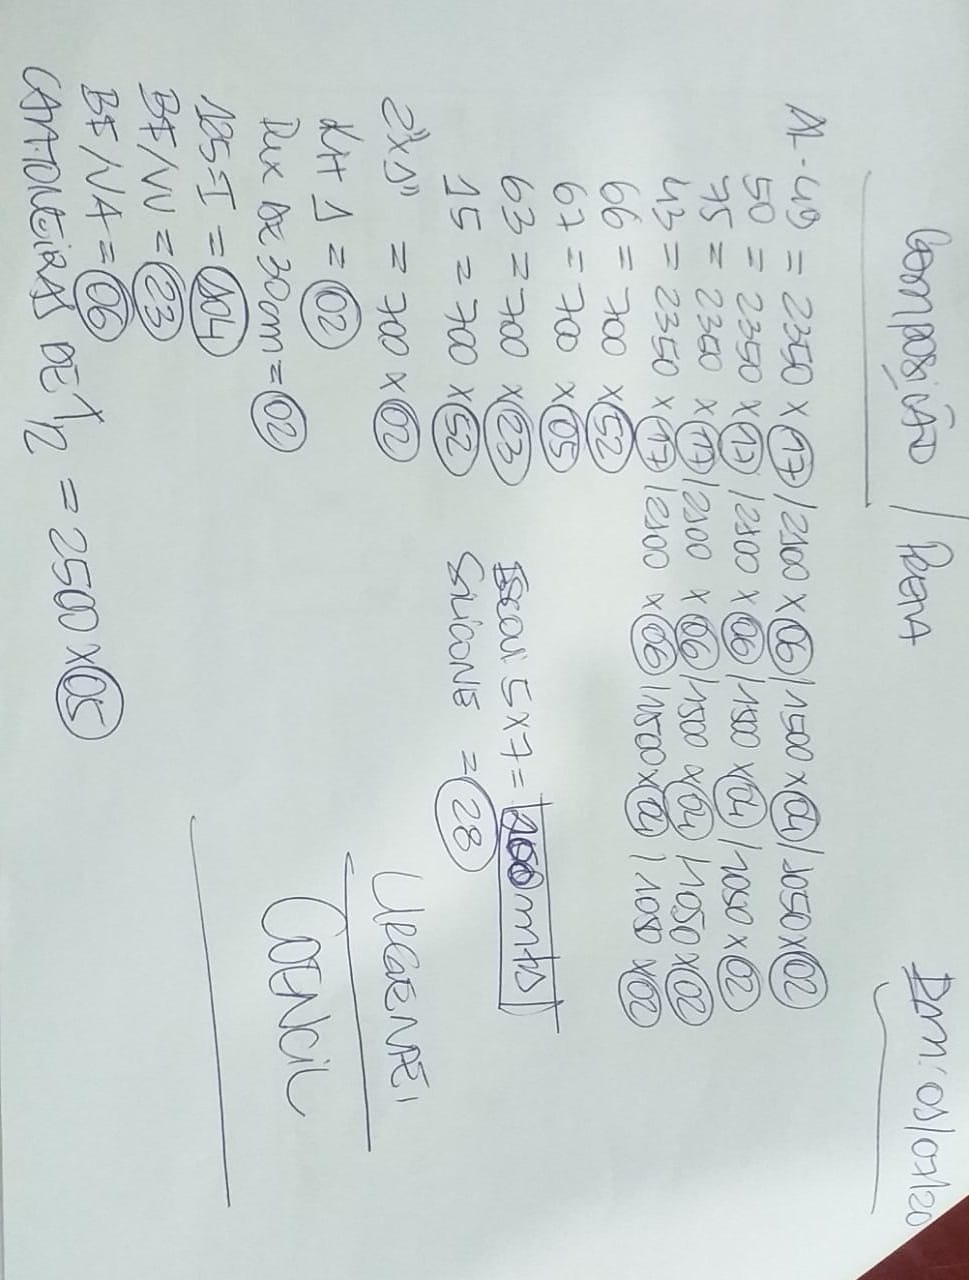 Composição / Preta
DATA: 01/07/20
AL - 49 = 2350 x 17 / 2100 x 06 / 1500 x 04 / 1050 x 02
50 = 2350 x 17 / 2100 x 06 / 1500 x 04 / 1050 x 02
75 = 2350 x 17 / 2100 x 06 / 1500 x 04 / 1050 x 02
43 = 2350 x 17 / 2100 x 06 / 1500 x 04 / 1050 x 02
66 = 700 x 52
67 = 700 x 05
63 = 700 x 23
15 = 700 x 52
2"x1" = 700 x 02
KH 1 = 02
DE 30cm = 02
125-I = 104
BF/VV = 23
BF/VA = 06
CANTONEIRAS DE 1/2 = 2500 x 05
5 x 7 = mts
SILICONE = 28
URGENTE!
COENCIL